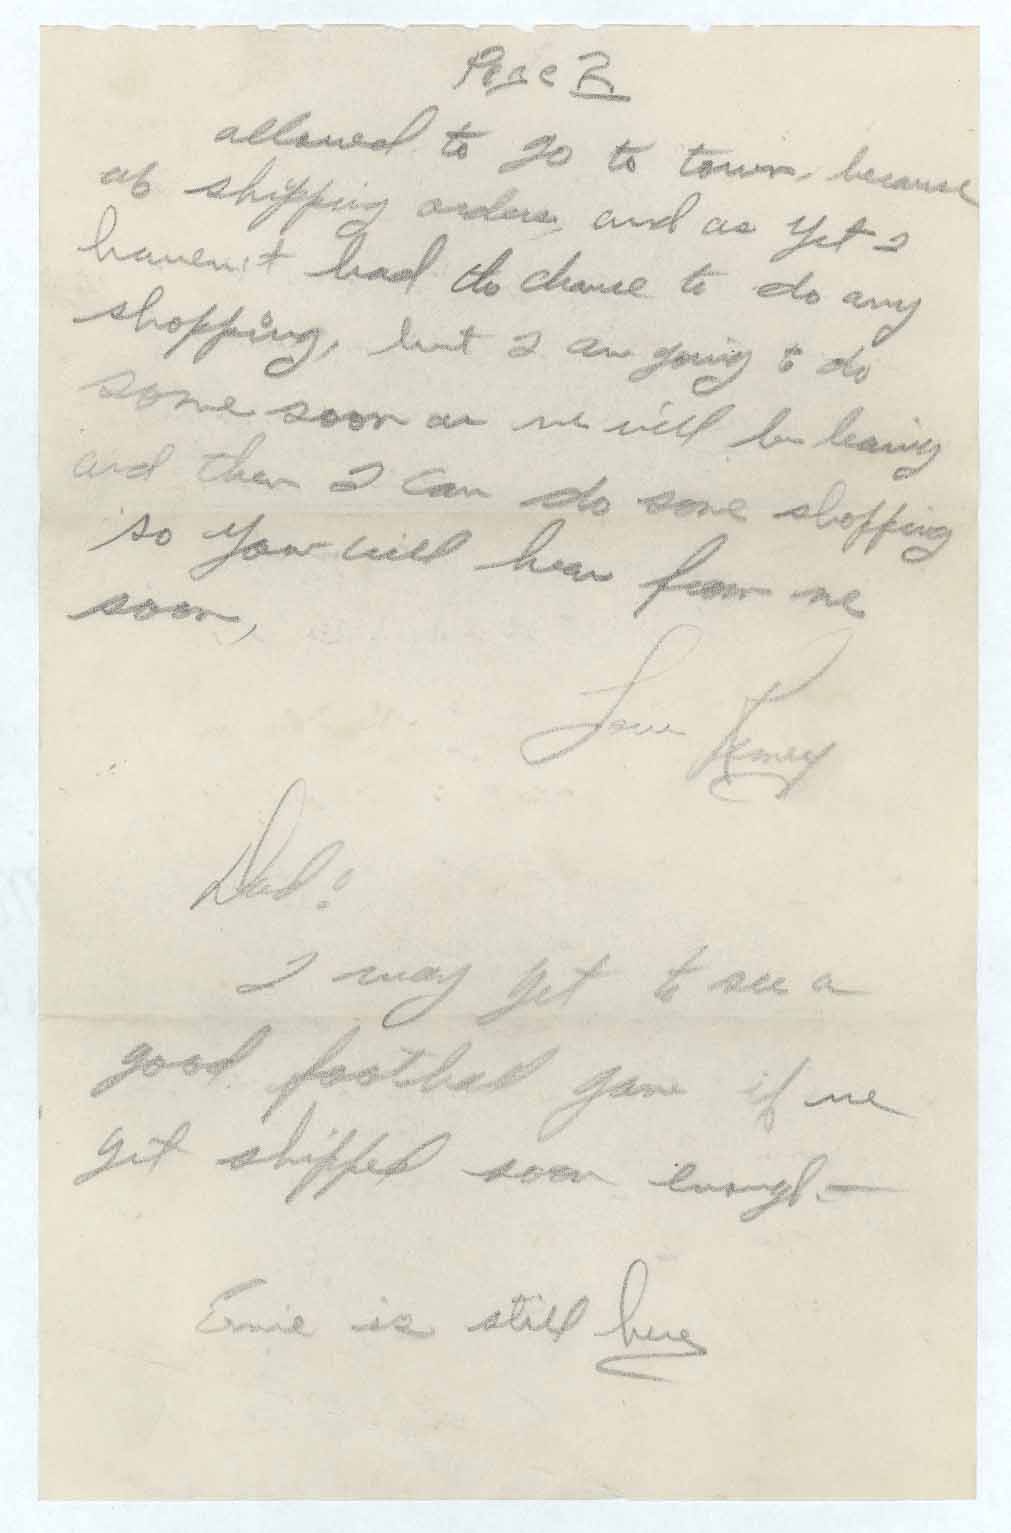 Page 2
allowed to go to town, because
of shipping orders, and as yet I
haven't had the chance to do any
shopping, but I am going to do
some soon as we will be leaving
and then I can do some shopping
so you will hear from me
soon,
Love
Dad:
I may yet to see a
good football game if we
get shipped soon enough —
Ernie is still here